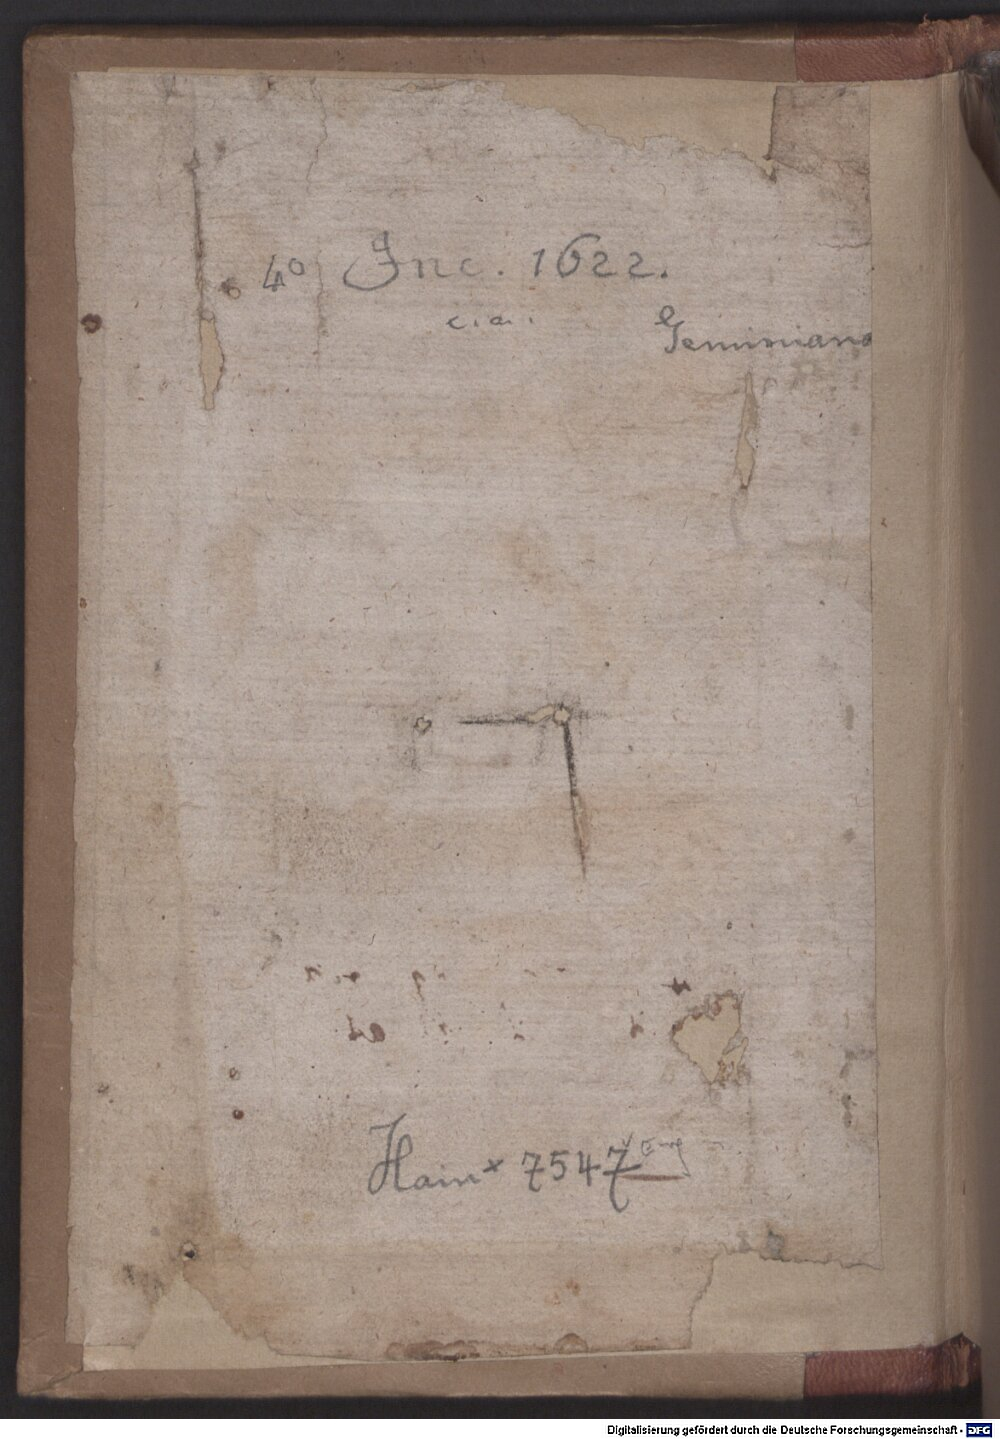 4° Inc. 1622.
c.a.
Geminiano
Hain* 7547
Digitalisierung gefördert durch die Deutsche Forschungsgemeinschaft - DFG